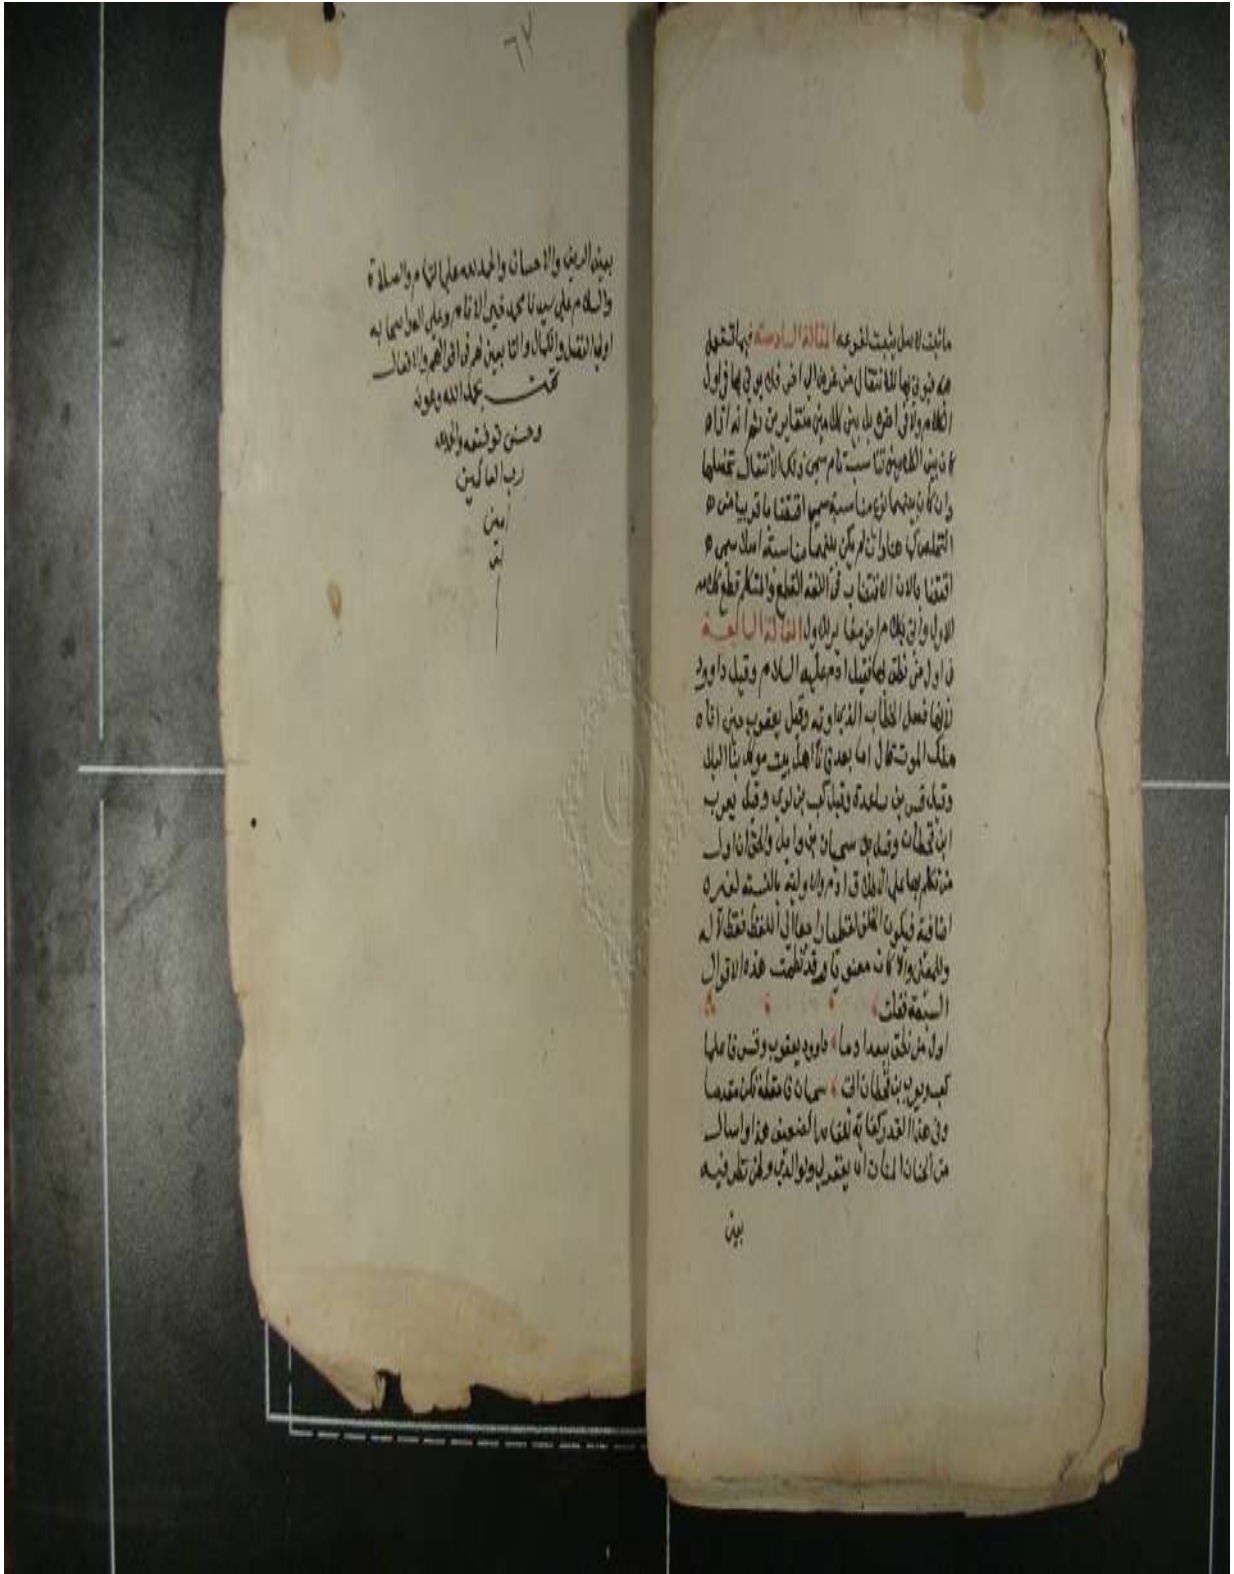 ما ثبت لاصل يثبت لفرعه المقالة السادسة فيما تستعمل
فيه فيوتي بها للانتقال من غرض الي اخر فلا يوتي بها في اول
الكلام ولا في اخره بل بين كلامين متغايرين ثم انه اذا ه
كان بين الكلامين تناسب تام سمي ذلك الانتقال تخلصا
وان كان بينهما نوع مناسبة سمي اقتضابا قريبا من ه
التخلص كما هنا وان لم يكن بينهما مناسبة اصلا سمي ه
اقتضابا لان الاقتضاب في اللغة القطع والمتكلم قطع كلامه
الاول واتي بكلام اخر مغاير للاول المقالة السابعة
في اول من نطق بها فقيل ادم عليه السلام وقيل داوود
لانها فصل الخطاب الذي اوتيه وقيل يعقوب حين اتاه
ملك الموت قال اما بعد فانا اهل بيت موكل بنا البلا
وقيل قس بن ساعدة وقيل كعب بن لوي وقيل يعرب
ابن قحطان وقيل سحبان بن وايل والحق ان اول
من تكلم بها علي الاطلاق ادم والاولية بالنسبة لغيره
اضافية فيكون الخلف لفظيا راجعا الي اللفظ فقط لا له
وللمعني والا كان معنويا وقد نظمت هذه الاقوال
السبعة فقلت
اول من نطق ببعد ادما داوود يعقوب وقس فاعلما
كعب ويعرب بن قحطان اتي سحبان
وفي هذا القدر كفاية للقاصر الضعيف هذا واسال
من الحنان المنان ان يغفر لي ولوالدي ولمن نظر فيه
بعين
٦٧
بعين الدين والاحسان والحمد لله علي التمام والصلاة
والسلام علي سيدنا محمد خير الانام وعلي اله واصحابه
اولي الفضل والكمال والتابعين لهم في اقوالهم والافعال
تمت بحمد الله وعونه
وحسن توفيقه والحمد لله
رب العالمين
امين